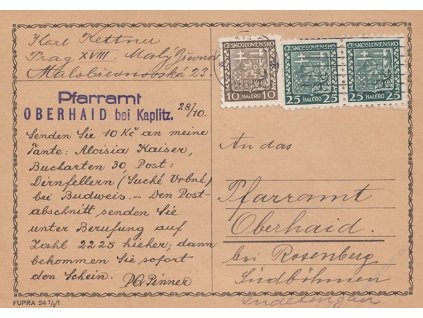 Karl Kettner
Prag XVIII. Malý Břevnov
Malobřevnovská 23.
Pfarramt
OBERHAID bei Kaplitz.
28/10.
Senden Sie 10 Kč an meine
Tante: Aloisia Kaiser,
Bucharten 30 Post:
Dirnfellern (Suché Vrbné)
bei Budweis. – Den Post-
abschnitt senden Sie
unter Berufung auf
Zahl 2225 hieher; dann
bekommen Sie sofort
den Schein.
FUPRA 24 1/8/1
ČESKOSLOVENSKO
10 HALÉŘŮ 10
ČESKOSLOVENSKO
25 HALÉŘŮ 25
ČESKOSLOVENSKO
25 HALÉŘŮ 25
An das
Pfarramt
Oberhaid
bei Rosenberg
Südböhmen
Sudetengau